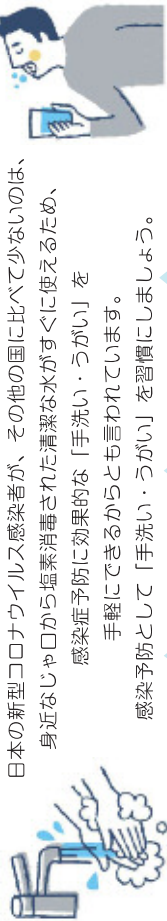 日本の新型コロナウイルス感染者が、その他の国に比べて少ないのは、
身近なじゃ口から塩素消毒された清潔な水がすぐに使えるため、
感染症予防に効果的な「手洗い・うがい」を
手軽にできるからとも言われています。
感染予防として「手洗い・うがい」を習慣にしましょう。